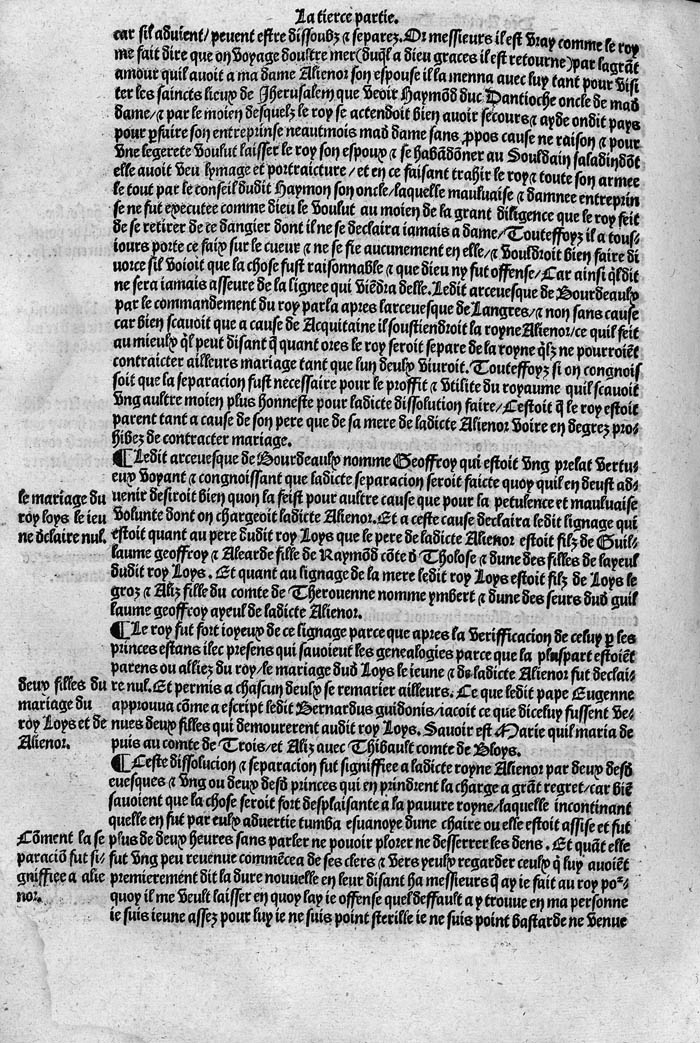 La tierce partie.
car sil aduient/ peuent estre dissoubz ⁊ separez. Or messieurs il est vray comme le roy
me fait dire que on voyage doultre mer (duq̃l a dieu graces il est retourne) par la grãt
amour quil auoit a ma dame Alienor son espouse il la menna auec luy tant pour visi
ter les saincts lieux de Jherusalem que veoir Haymõd duc Dantioche oncle de mad
dame/ ⁊ par le moien desquelz le roy se actendoit bien auoir secours ⁊ ayde ondit pays
pour ꝑfaire son entreprinse neautmois mad dame sans ꝓpos cause ne raison ⁊ pour
vne legerete voulut laisser le roy son espoux ⁊ se habãdõner au Souldain saladin dõt
elle auoit veu lymage et portraicture/ et en ce faisant trahir le roy ⁊ toute son armee
le tout par le conseil dudit Haymon son oncle/ laquelle mauluaise ⁊ damnee entreprin
se ne fut executee comme dieu le voulut au moien de la grant diligence que le roy feit
de se retirer de ce dangier dont il ne se declaira iamais a dame/ Touteffoyz il a tous⸗
iours porte ce faix sur le cueur ⁊ ne se fie aucunement en elle/ ⁊ vouldroit bien faire di
uorce sil voioit que la chose fust raisonnable ⁊ que dieu ny fut offense/ Car ainsi q̃l dit
ne sera iamais asseure de la lignee qui viẽdra delle. Ledit arceuesque de Bourdeaulx
par le commandement du roy parla apres larceuesque de Langres/ ⁊ non sans cause
car bien scauoit que a cause de Acquitaine il soustiendroit la royne Alienor/ ce quil feit
au mieulx q̃l peut disant q̃ quant ores le roy seroit separe de la royne q̃lz ne pourroiẽt
contraicter ailleurs mariage tant que lun deulx viuroit. Touteffoyz si on congnois
soit que la separacion fust necessaire pour le proffit ⁊ vtilite du royaume quil scauoit
vng aultre moien plus honneste pour ladicte dissolution faire/ Cestoit q̃ le roy estoit
parent tant a cause de son pere que de sa mere de ladicte Alienor voire en degrez pro⸗
hibez de contracter mariage.
¶ Ledit arceuesque de Bourdeaulx nomme Geoffroy qui estoit vng prelat vertu⸗
eux voyant ⁊ congnoissant que ladicte separacion seroit faicte quoy quil en deust ad⸗
le mariage du
roy loys le ieu
ne dclaire nul.
uenir desiroit bien quon la feist pour aultre cause que pour la petulence et mauluaise
volunte dont on chargeoit ladicte Alienor. Et a ceste cause declaira ledit lignage qui
estoit quant au pere dudit roy Loys que le pere de ladicte Alienor estoit filz de Guil⸗
laume geoffroy ⁊ Alearde fille de Raymõd cõte d Tholose ⁊ dune des filles de layeul
dudit roy Loys. Et quant au lignage de la mere ledit roy Loys estoit filz de Loys le
groz ⁊ Aliz fille du comte de Therouenne nomme ymbert ⁊ dune des seurs dud guil
laume geoffroy ayeul de ladicte Alienor.
¶ Le roy fut fort ioyeux de ce lignage parce que apres la verifficacion de celuy ꝑ les
princes estans ilec presens qui sauoient les genealogies parce que la pluspart estoiẽt
parens ou alliez du roy/ le mariage dud Loys le ieune ⁊ de ladicte Alienor fut declai⸗
deux filles du
mariage du
roy Loys et de
Alienor.
re nul. Et permis a chascun deulx se remarier ailleurs. Ce que ledit pape Eugenne
approuua cõme a escript ledit Bernardus guidonis/ iacoit ce que diceluy fussent ve⸗
nues deux filles qui demourerent audit roy Loys. Sauoir est Marie quil maria de
puis au comte de Trois/ et Aliz auec Thibault comte de Bloys.
¶ Ceste dissolucion ⁊ separacion fut signiffiee a ladicte royne Alienor par deux desd
euesques ⁊ vng ou deux desd princes qui en prindrent la charge a grãt regret/ car biẽ
sauoient que la chose seroit fort desplaisante a la pauure royne/ laquelle incontinant
quelle en fut par eulx aduertie tumba esuanoye dune chaire ou elle estoit assise et fut
Cõment la se
paraciõ fut si⸗
gniffiee a alie
nor.
plus de deux heures sans parler ne pouoir plorer ne desserrer les dens. Et quãt elle
fut vng peu reuenue commẽcea de ses clers ⁊ vers yeulx regarder ceulx q̃ luy auoiẽt
premierement dit la dure nouuelle en leur disant ha messieurs q̃ ay ie fait au roy po²⸗
quoy il me veult laisser en quoy lay ie offense quel deffault a y trouue en ma personne
ie suis ieune assez pour luy ie ne suis point sterille ie ne suis point bastarde ne venue